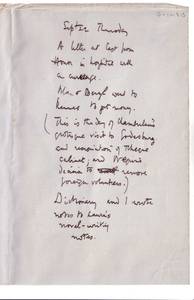 Sept 22 Thursday
A letter at last from
in hospital with
an
went to
to get money.
(This is the day of Chamberlain's
grotesque visit to Godesberg
and resignation of Prague
Cabinet; and Negrin's
decision to remove
foreign volunteers.)
Dictionary and I wrote
notes to Laurie's
novel-writing
notes.